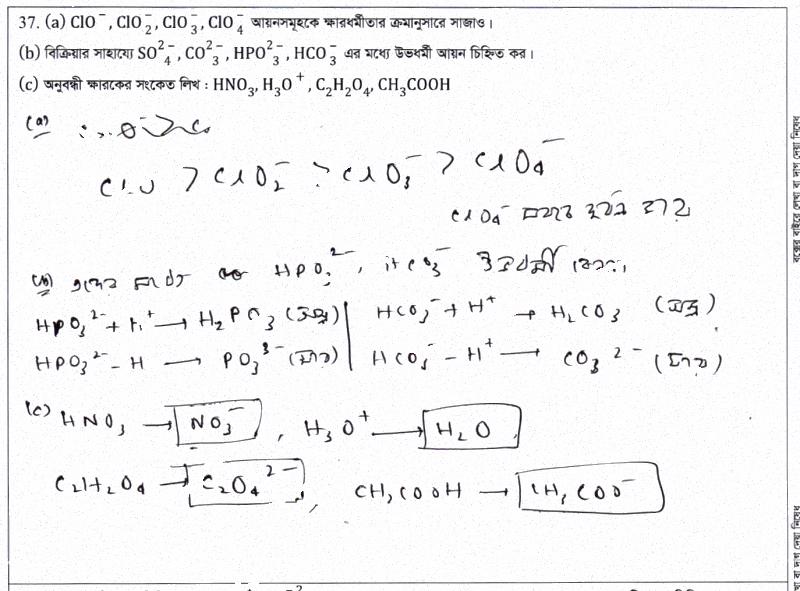 37. (a) ClO⁻, ClO₂⁻, ClO₃⁻, ClO₄⁻ আয়নসমূহকে ক্ষারধর্মীতার ক্রমানুসারে সাজাও।
(b) বিক্রিয়ার সাহায্যে SO₄²⁻, CO₃²⁻, HPO₃²⁻, HCO₃⁻ এর মধ্যে উভধর্মী আয়ন চিহ্নিত কর।
(c) অনুবন্ধী ক্ষারকের সংকেত লিখ : HNO₃, H₃O⁺, C₂H₂O₄, CH₃COOH
(a)
> ClO₂⁻ > ClO₃⁻ > ClO₄⁻
ClO₄⁻ সবচেয়ে দুর্বল
(b) এদের মধ্যে HPO₃²⁻, HCO₃⁻ উভধর্মী
HPO₃²⁻ + H⁺ → H₂PO₃ (অম্ল) | HCO₃⁻ + H⁺ → H₂CO₃ (অম্ল)
HPO₃²⁻ - H → PO₃³⁻ (ক্ষার) | HCO₃⁻ - H⁺ → CO₃²⁻ (ক্ষার)
(c) HNO₃ → NO₃⁻, H₃O⁺ → H₂O
C₂H₂O₄ → C₂O₄²⁻, CH₃COOH → CH₃COO⁻